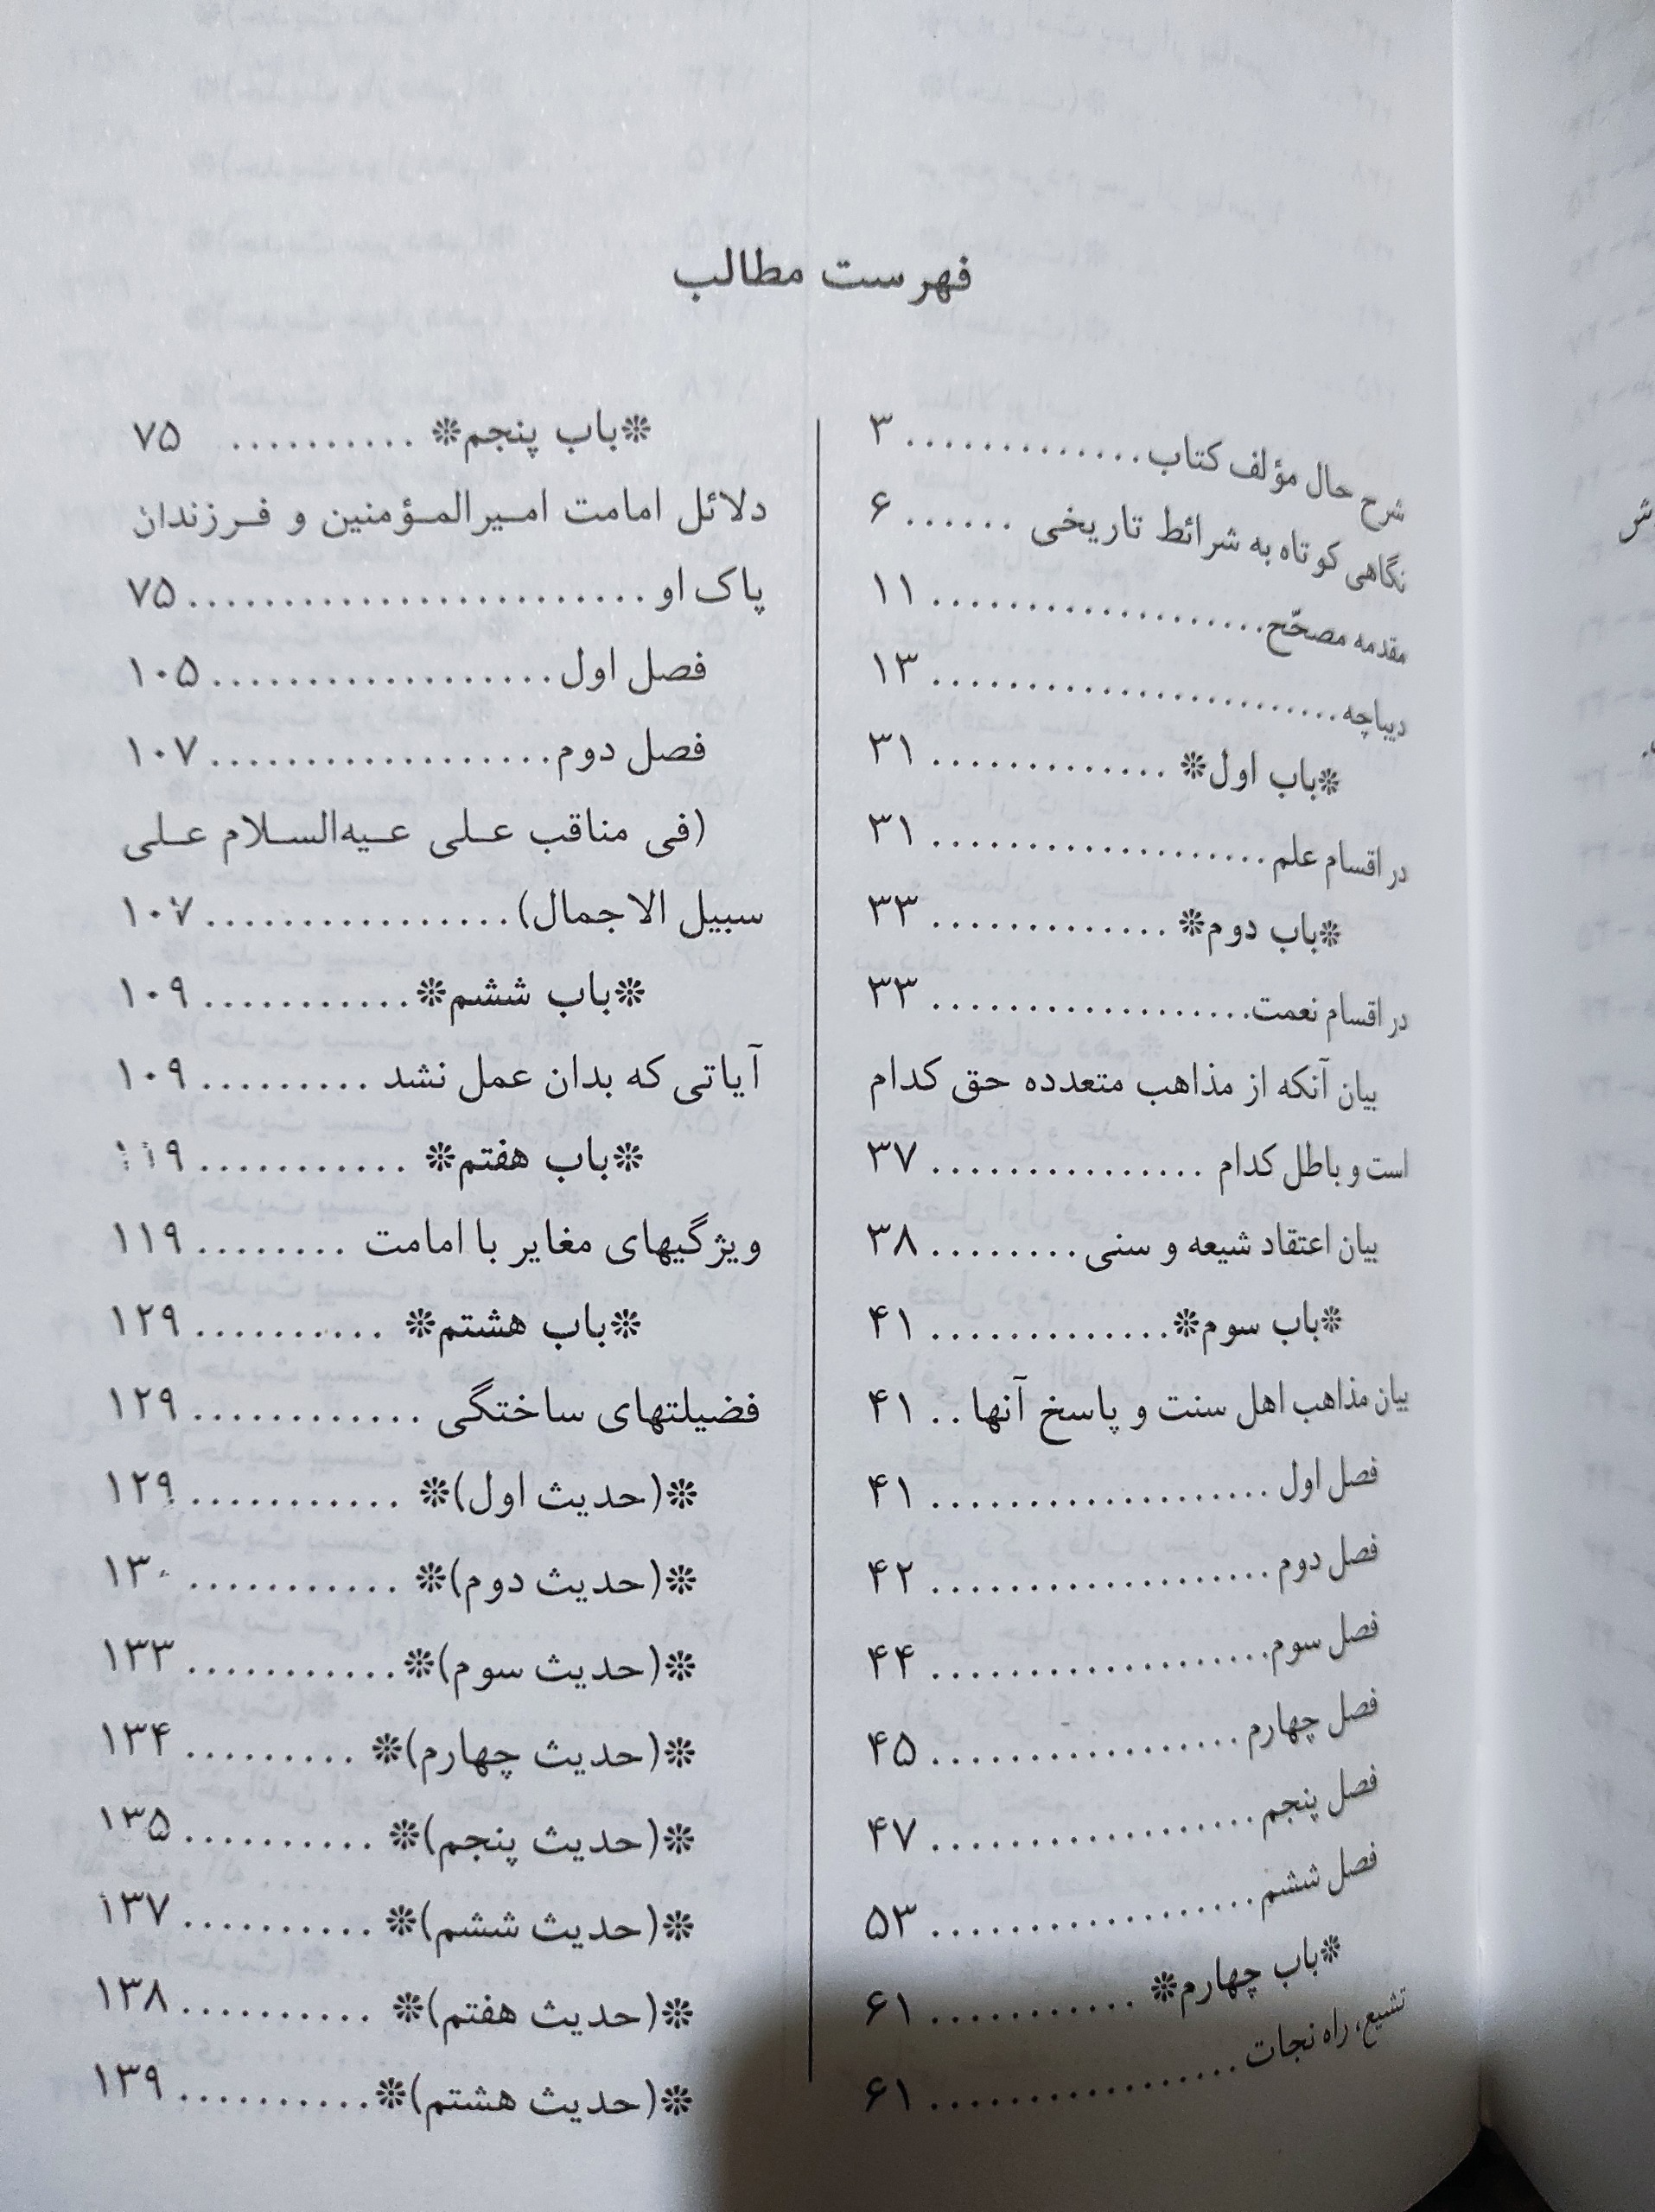 فهرست مطالب
شرح حال مؤلف کتاب ............. ۳
نگاهی کوتاه به شرائط تاریخی ...... ۶
مقدمه مصحّح .................. ۱۱
دیباچه ...................... ۱۳
❊باب اول❊ ............. ۳۱
در اقسام علم .................. ۳۱
❊باب دوم❊ ............. ۳۳
در اقسام نعمت .................. ۳۳
بیان آنکه از مذاهب متعدده حق کدام
است و باطل کدام ............... ۳۷
بیان اعتقاد شیعه و سنی ........ ۳۸
❊باب سوم❊ ............. ۴۱
بیان مذاهب اهل سنت و پاسخ آنها .. ۴۱
فصل اول .................. ۴۱
فصل دوم .................. ۴۲
فصل سوم .................. ۴۴
فصل چهارم ................. ۴۵
فصل پنجم ................. ۴۷
فصل ششم ................. ۵۳
❊باب چهارم❊ ........... ۶۱
تشیع، راه نجات ................ ۶۱
❊باب پنجم❊ .......... ۷۵
دلائل امامت امیرالمؤمنین و فرزندان
پاک او ........................ ۷۵
فصل اول .................. ۱۰۵
فصل دوم .................. ۱۰۷
(فی مناقب علی عیه‌السلام علی
سبیل الاجمال) ................ ۱۰۷
❊باب ششم❊ ........... ۱۰۹
آیاتی که بدان عمل نشد ......... ۱۰۹
❊باب هفتم❊ ........... ۱۱۹
ویژگیهای مغایر با امامت ........ ۱۱۹
❊باب هشتم❊ .......... ۱۲۹
فضیلتهای ساختگی ............ ۱۲۹
❊(حدیث اول)❊ ........... ۱۲۹
❊(حدیث دوم)❊ ........... ۱۳۰
❊(حدیث سوم)❊ ........... ۱۳۳
❊(حدیث چهارم)❊ ......... ۱۳۴
❊(حدیث پنجم)❊ .......... ۱۳۵
❊(حدیث ششم)❊ .......... ۱۳۷
❊(حدیث هفتم)❊ .......... ۱۳۸
❊(حدیث هشتم)❊ .......... ۱۳۹